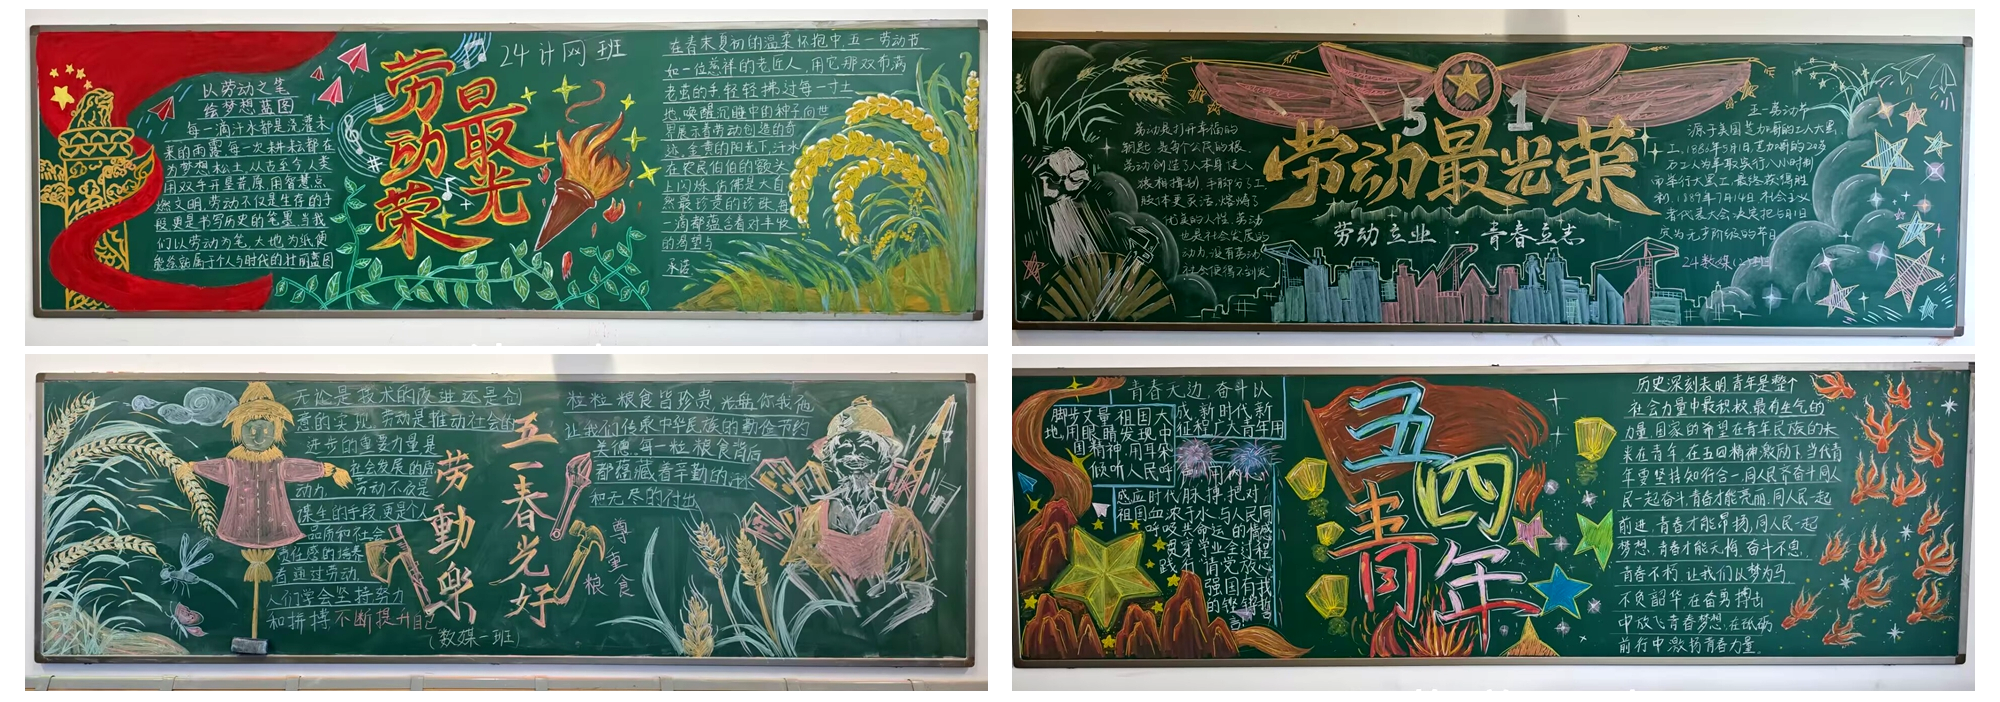 24计网班
劳动
最光
荣
以劳动之笔
绘梦想蓝图
每一滴汗水都是浇灌未
来的雨露,每一次耕耘都在
为梦想松土,从古至今人类
用双手开垦荒原,用智慧点
燃文明,劳动不仅是生存的手
段更是书写历史的笔墨,当我
们以劳动为笔,大地为纸便
能绘就属于个人与时代的壮丽蓝图
在春末夏初的温柔怀抱中,五一劳动节
如一位慈祥的老匠人,用它那双布满
老茧的手轻轻拂过每一寸土
地,唤醒沉睡中的种子向世
界展示着劳动创造的奇
迹,金黄的阳光下,汗水
在农民伯伯的额头
上闪烁,仿佛是大自
然最珍贵的珍珠,每
一滴都蕴含着对丰收
的渴望与
承诺
5 1
劳动最光荣
劳动立业·青春立志
劳动是打开幸福的
钥匙 是每个公民的根。
劳动创造了人本身,使人
优美的人性,劳动
也是社会发展的
动力,没有劳动
社会便得不到发
五一劳动节
源于美国芝加哥的工人大罢
工,1886年5月1日,芝加哥的20多
万工人为争取实行八小时制
而举行大罢工,最终获得胜
利。1889年7月14日,社会主义
者代表大会,决定把5月1日
定为无产阶级的节日
24数媒(2)班
无论是技术的改进还是创
意的实现,劳动是推动社会的
进步的重要力量是
社会发展的原
动力,劳动不仅是
谋生的手段,更是个人
品质和社会
责任感的培养
者通过劳动,
人们学会坚持努力
和拼搏不断提升自己
(数媒一班)
劳動樂
五一春光好
粒粒粮食皆珍贵,光盘你我他
让我们传承中华民族的勤俭节约
美德,每一粒粮食背后
都蕴藏着辛勤的汗水
和无尽的付出
尊重粮食
青春无边,奋斗以
成,新时代新
征程广大青年用
脚步丈量祖国大
地,用眼睛发现中
国精神,用耳朵
倾听人民呼
用内心
感应时代脉搏,把对
祖国血浓于水、与人民同
五四
青年
历史深刻表明,青年是整个
社会力量中最积极,最有生气的
力量,国家的希望在青年,民族的未
来在青年,在五四精神激励下,当代青
年要坚持知行合一,同人民齐奋斗,同人
民一起奋斗,青春才能亮丽,同人民一起
前进,青春才能昂扬,同人民一起
梦想,青春才能无悔,奋斗不息
青春不朽,让我们以梦为马
不负韶华,在奋勇搏击
中放飞青春梦想,在砥砺
前行中激扬青春力量。